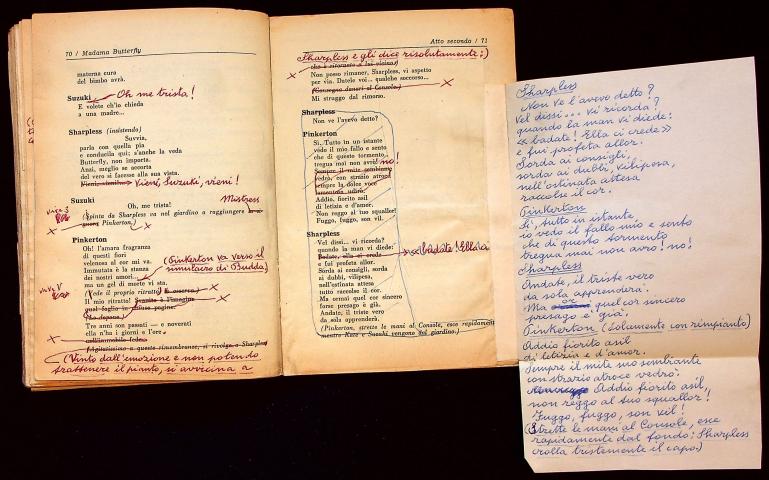 70 / Madama Butterfly
materna cura
del bimbo avrà.
Suzuki Oh me trista!
E volete ch'io chieda
a una madre...
Sharpless (insistendo)
Suvvia,
parla con quella pia
e conducila qui; s'anche la veda
Butterfly, non importa.
Anzi, meglio se accorta
del vero si facesse alla sua vista.
Vieni, Suzuki, vieni!
Suzuki
Oh, me trista! Mistress
(Spinta da Sharpless va nel giardino a raggiungere
Pinkerton.)
Pinkerton
Oh! l'amara fragranza
di questi fiori
velenosa al cor mi va. (Pinkerton va verso il
Immutata è la stanza simulacro di Budda)
dei nostri amori...
ma un gel di morte vi sta.
(Vede il proprio ritratto)
Il mio ritratto!
Tre anni son passati — e noverati
ella n'ha i giorni e l'ore!
(Agitatissimo a queste rimembranze, si rivolge a Sharpless
(Vinto dall'emozione e non potendo
trattenere il pianto, si avvicina a
Atto secondo / 71
Sharpless e gli dice risolutamente:)
che è ritornato a lui vicino)
Non posso rimaner, Sharpless, vi aspetto
per via. Datele voi... qualche soccorso...
(Consegna denari al Console)
Mi struggo dal rimorso.
Sharpless
Non ve l'avevo detto?
Pinkerton
Sì. Tutto in un istante
vedo il mio fallo e sento
che di questo tormento
tregua mai non avrò! no!
Sempre il mite sembiante
vedrò, con strazio atroce
sempre la dolce voce
lamentosa udirò.
Addio, fiorito asil
di letizia e d'amor.
Non reggo al tuo squallor!
Fuggo, fuggo, son vil.
Sharpless
Vel dissi... vi ricorda?
quando la man vi diede:
Badate, ella ci crede «badate! Ella ci
e fui profeta allor.
Sorda ai consigli, sorda
ai dubbi, vilipesa,
nell'ostinata attesa
tutto raccolse il cor.
Ma ormai quel cor sincero
forse presago è già.
Andate, il triste vero
da sola apprenderà.
(Pinkerton, strette le mani al Console, esce rapidamente
mentre Kate e Suzuki vengono dal giardino.)
Sharpless
Non ve l'avevo detto?
Vel dissi... vi ricorda?
quando la man vi diede:
«badate! Ella ci crede»
e fui profeta allor.
Sorda ai consigli,
sorda ai dubbi, vilipesa,
nell'ostinata attesa
raccolse il cor.
Pinkerton
Sì, tutto in istante,
io vedo il fallo mio e sento
che di questo tormento
tregua mai non avrò! no!
Sharpless
Andate, il triste vero
da sola apprenderà.
Ma or quel cor sincero
presago è già.
Pinkerton (solamente con rimpianto)
Addio fiorito asil
di letizia e d'amor.
Sempre il mite suo sembiante
con strazio atroce vedrò.
Addio fiorito asil,
non reggo al tuo squallor!
Fuggo, fuggo, son vil!
(Strette le mani al Console, esce
rapidamente dal fondo: Sharpless
crolla tristemente il capo.)